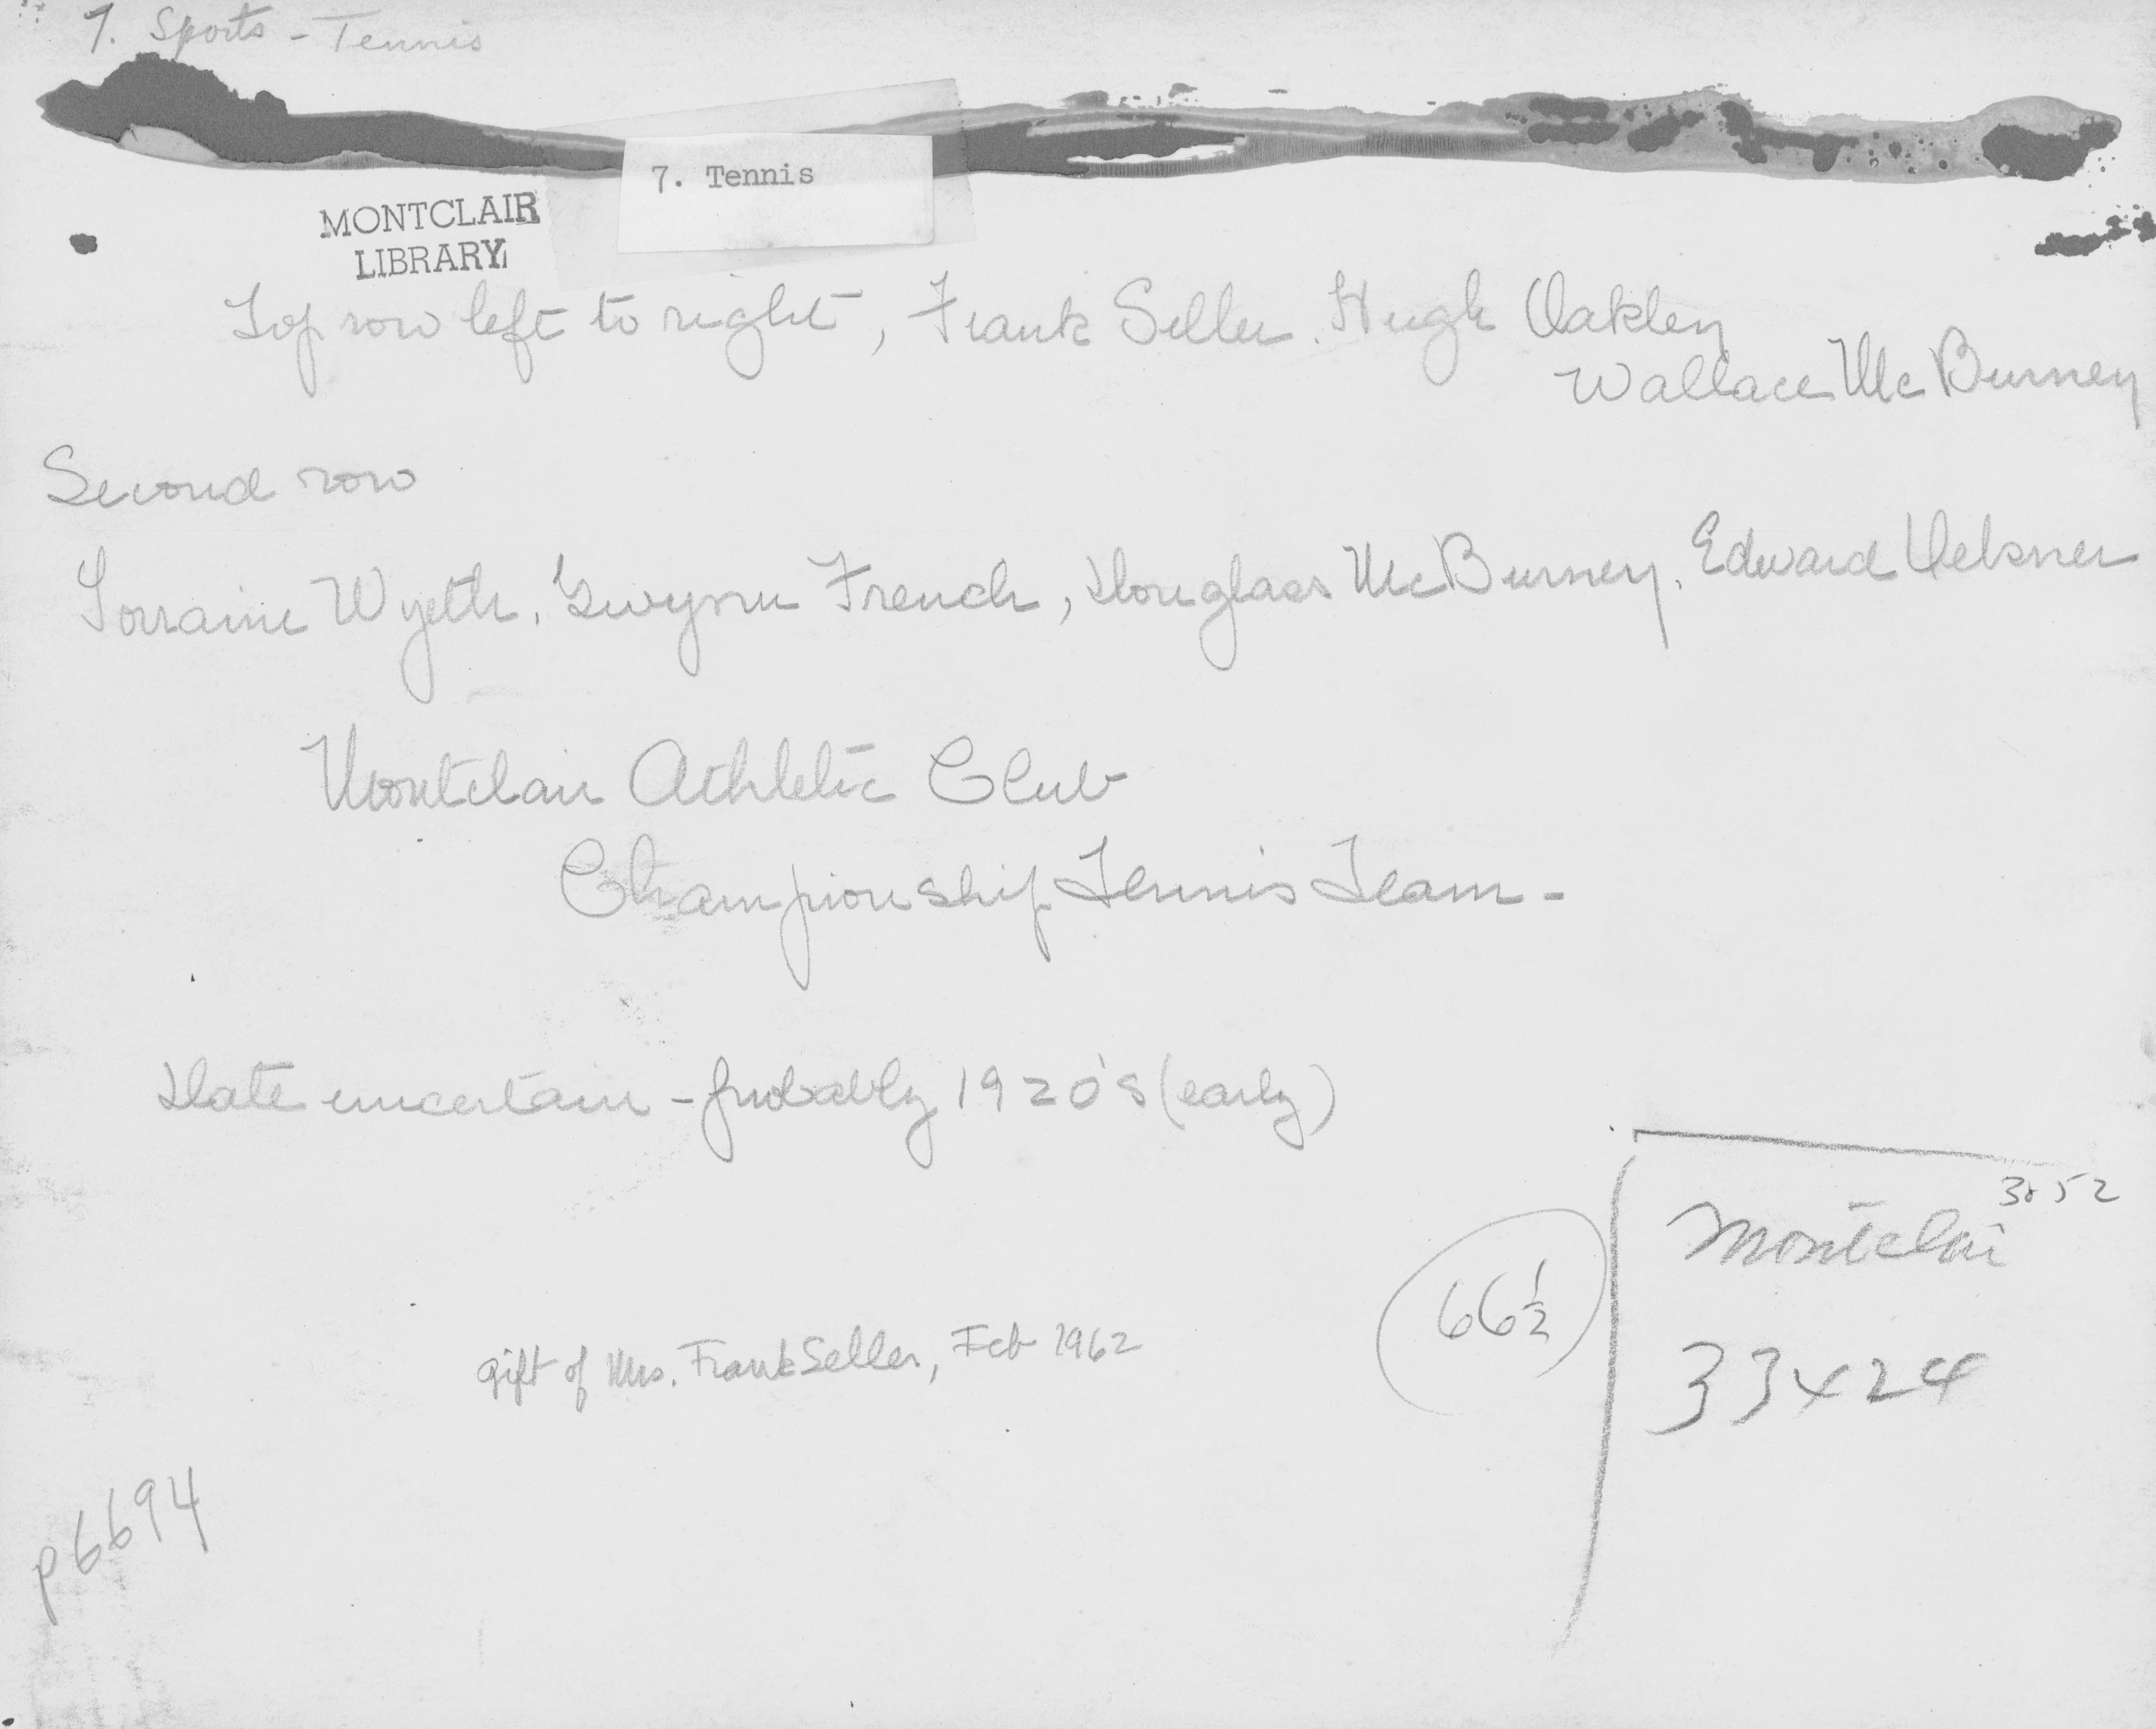 7. Sports - Tennis
7. Tennis
MONTCLAIR
LIBRARY
Top row left to right, Frank Seller. Hugh Oakley
Wallace McBurney
Second row
Lorraine Wyeth, Gwynn French, Douglass McBurney, Edward Oelsner
Montclair Athletic Club
Championship Tennis Team -
Date uncertain - probably 1920's (early)
3852
Montclair
66 1/2
33x24
gift of Mrs. Frank Seller, Feb 1962
p6694